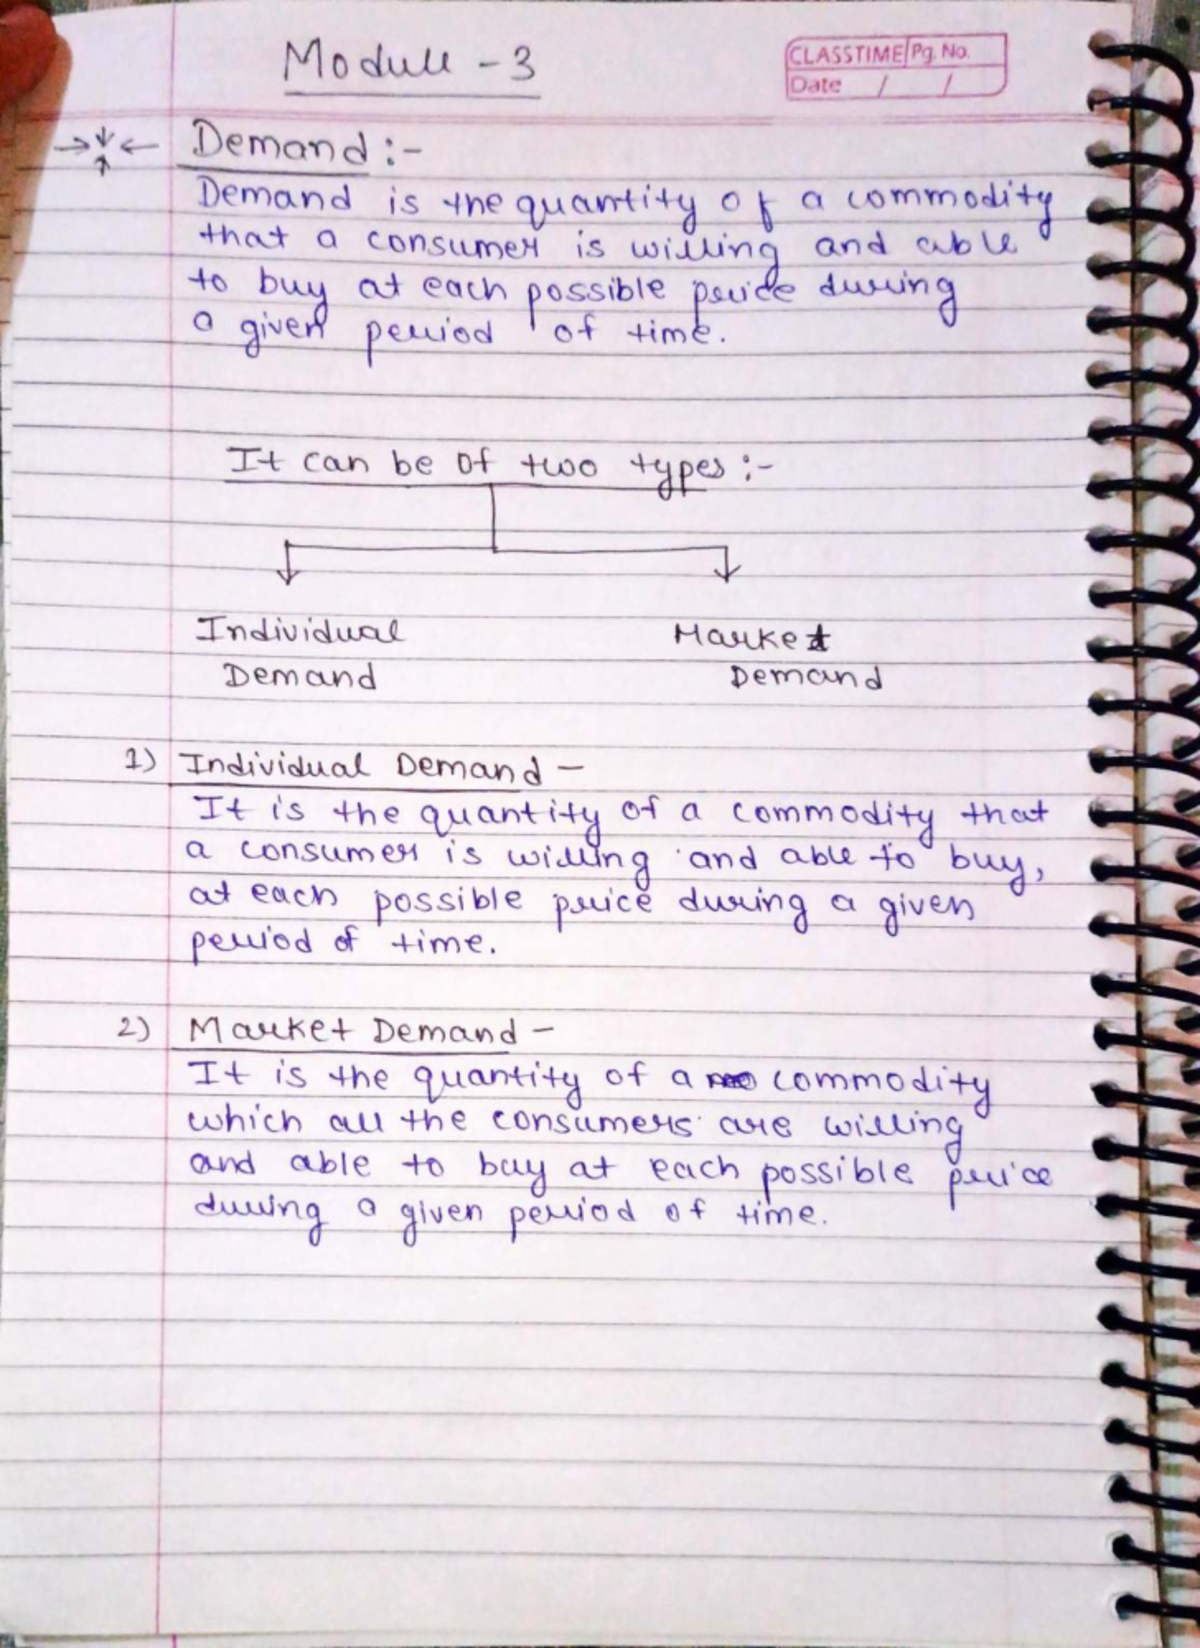 Module - 3
CLASSTIME Pg. No.
Date / /
Demand :-
Demand is the quantity of a commodity
that a consumer is willing and able
to buy at each possible price during
a given period of time.
It can be of two types :-
Individual Market
Demand Demand
1) Individual Demand -
It is the quantity of a commodity that
a consumer is willing and able to buy,
at each possible price during a given
period of time.
2) Market Demand -
It is the quantity of a commodity
which all the consumers are willing
and able to buy at each possible price
during a given period of time.